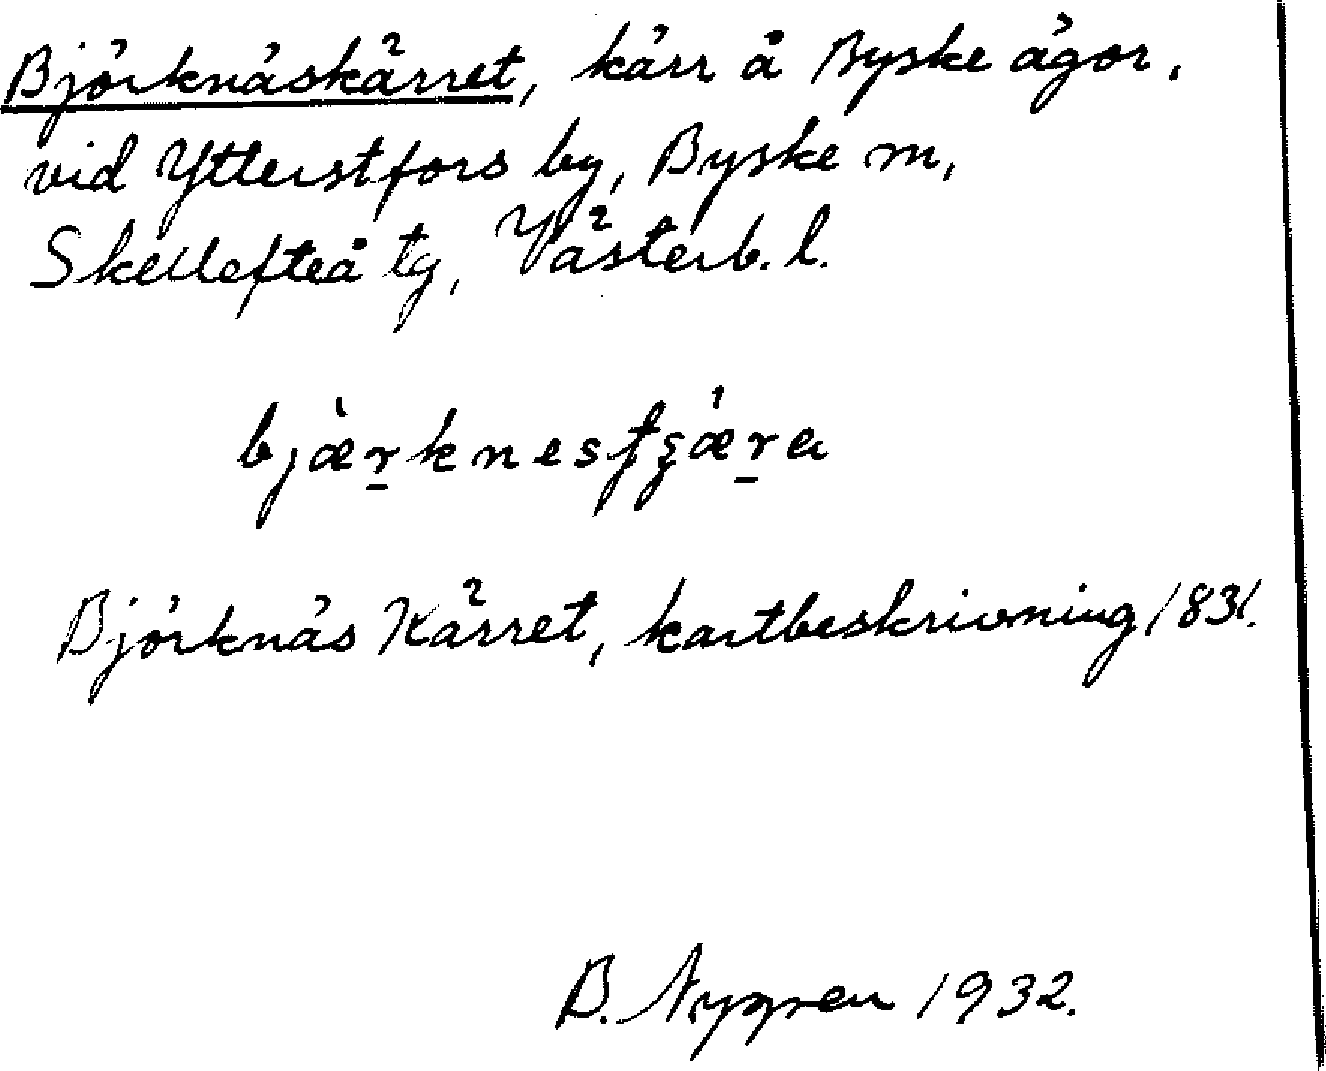 Björknäskärret, kärr å Byske ägor,
vid Ytterstfors by, Byske sn,
Skellefteå tg, Västerb. l.
Björknäs Kärret, kartbeskrivning 1831.
B. Nygren 1932.